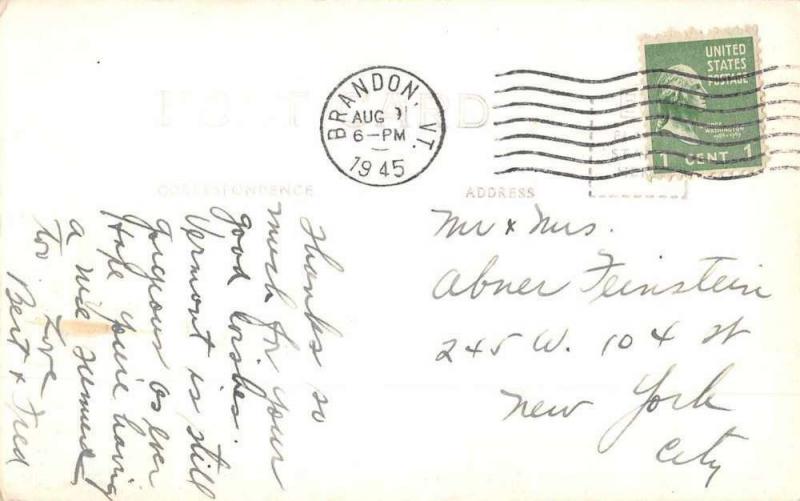 POST CARD
BRANDON, VT.
AUG
6-PM
1945
UNITED
STATES
POSTAGE
WASHINGTON
1 CENT 1
CORRESPONDENCE
ADDRESS
Thanks so
much for your
good wishes.
Vermont is still
gorgeous as ever
Hope you're having
a nice summer
too Love
Bert & Fred
Mr & Mrs.
Abner Feinstein
245 W. 104 st
New York
City